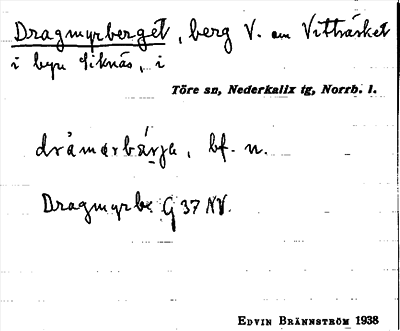 Dragmyrberget, berg V. om Vitträsket
i byn Siknäs, i
Töre sn, Nederkalix tg, Norrb. l.
dråmarbärja, bf. n.
Dragmyrbe G 37 NV.
Edvin Brännström 1938